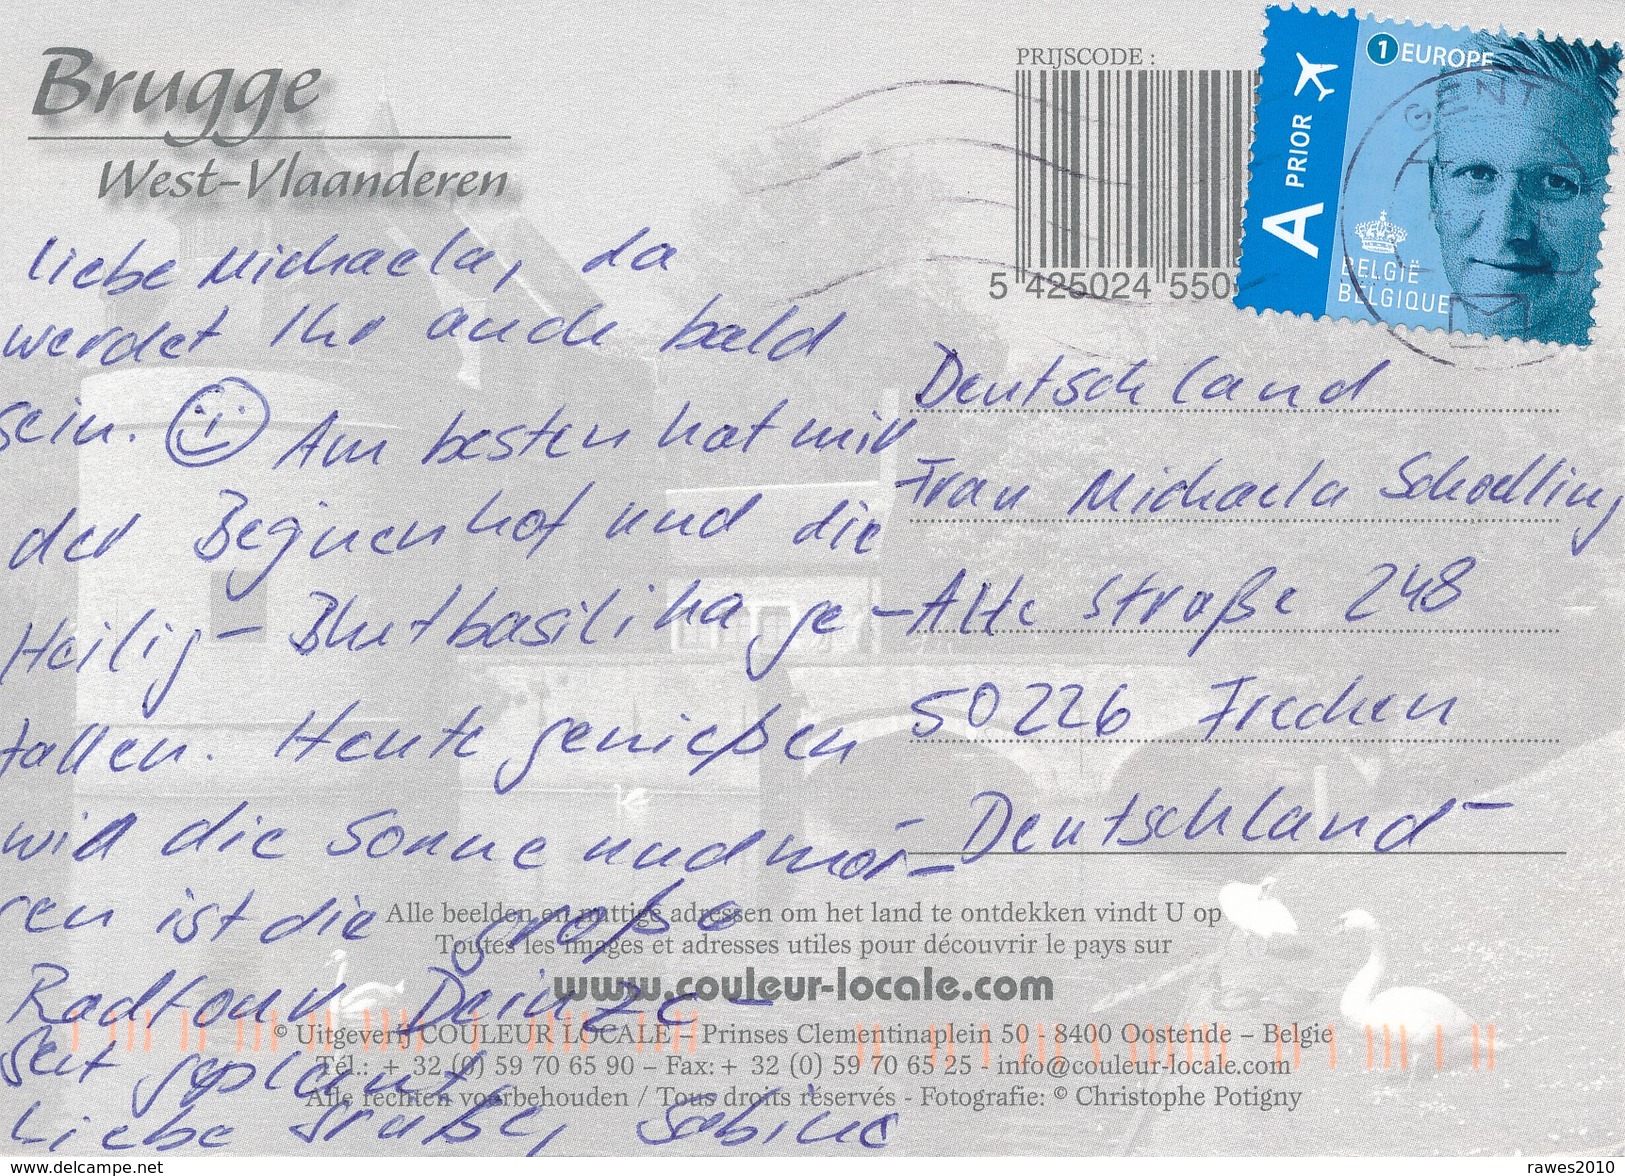 Brugge
West-Vlaanderen
PRIJSCODE :
5 425024 550
1 EUROPE
A PRIOR
BELGIË
BELGIQUE
GENT
liebe Michaela, da
werdet Ihr auch bald
sein. Am besten hat mir
der Beginenhof und die
Heilig-Blutbasilika ge-
fallen. Heute genießen
wir die Sonne und mor-
ren ist die große
Radtour Deinze-
geplant
Liebe Grüße, Sabine
Deutschland
Frau Michaela Schoelling
Alte Straße 248
50226 Frechen
-Deutschland-
Alle beelden en nuttige adressen om het land te ontdekken vindt U op
Toutes les images et adresses utiles pour découvrir le pays sur
www.couleur-locale.com
© Uitgeverij COULEUR LOCALE – Prinses Clementinaplein 50 - 8400 Oostende – Belgie
Tél.: + 32 (0) 59 70 65 90 – Fax: + 32 (0) 59 70 65 25 - info@couleur-locale.com
Alle rechten voorbehouden / Tous droits réservés - Fotografie: © Christophe Potigny
www.delcampe.net
rawes2010